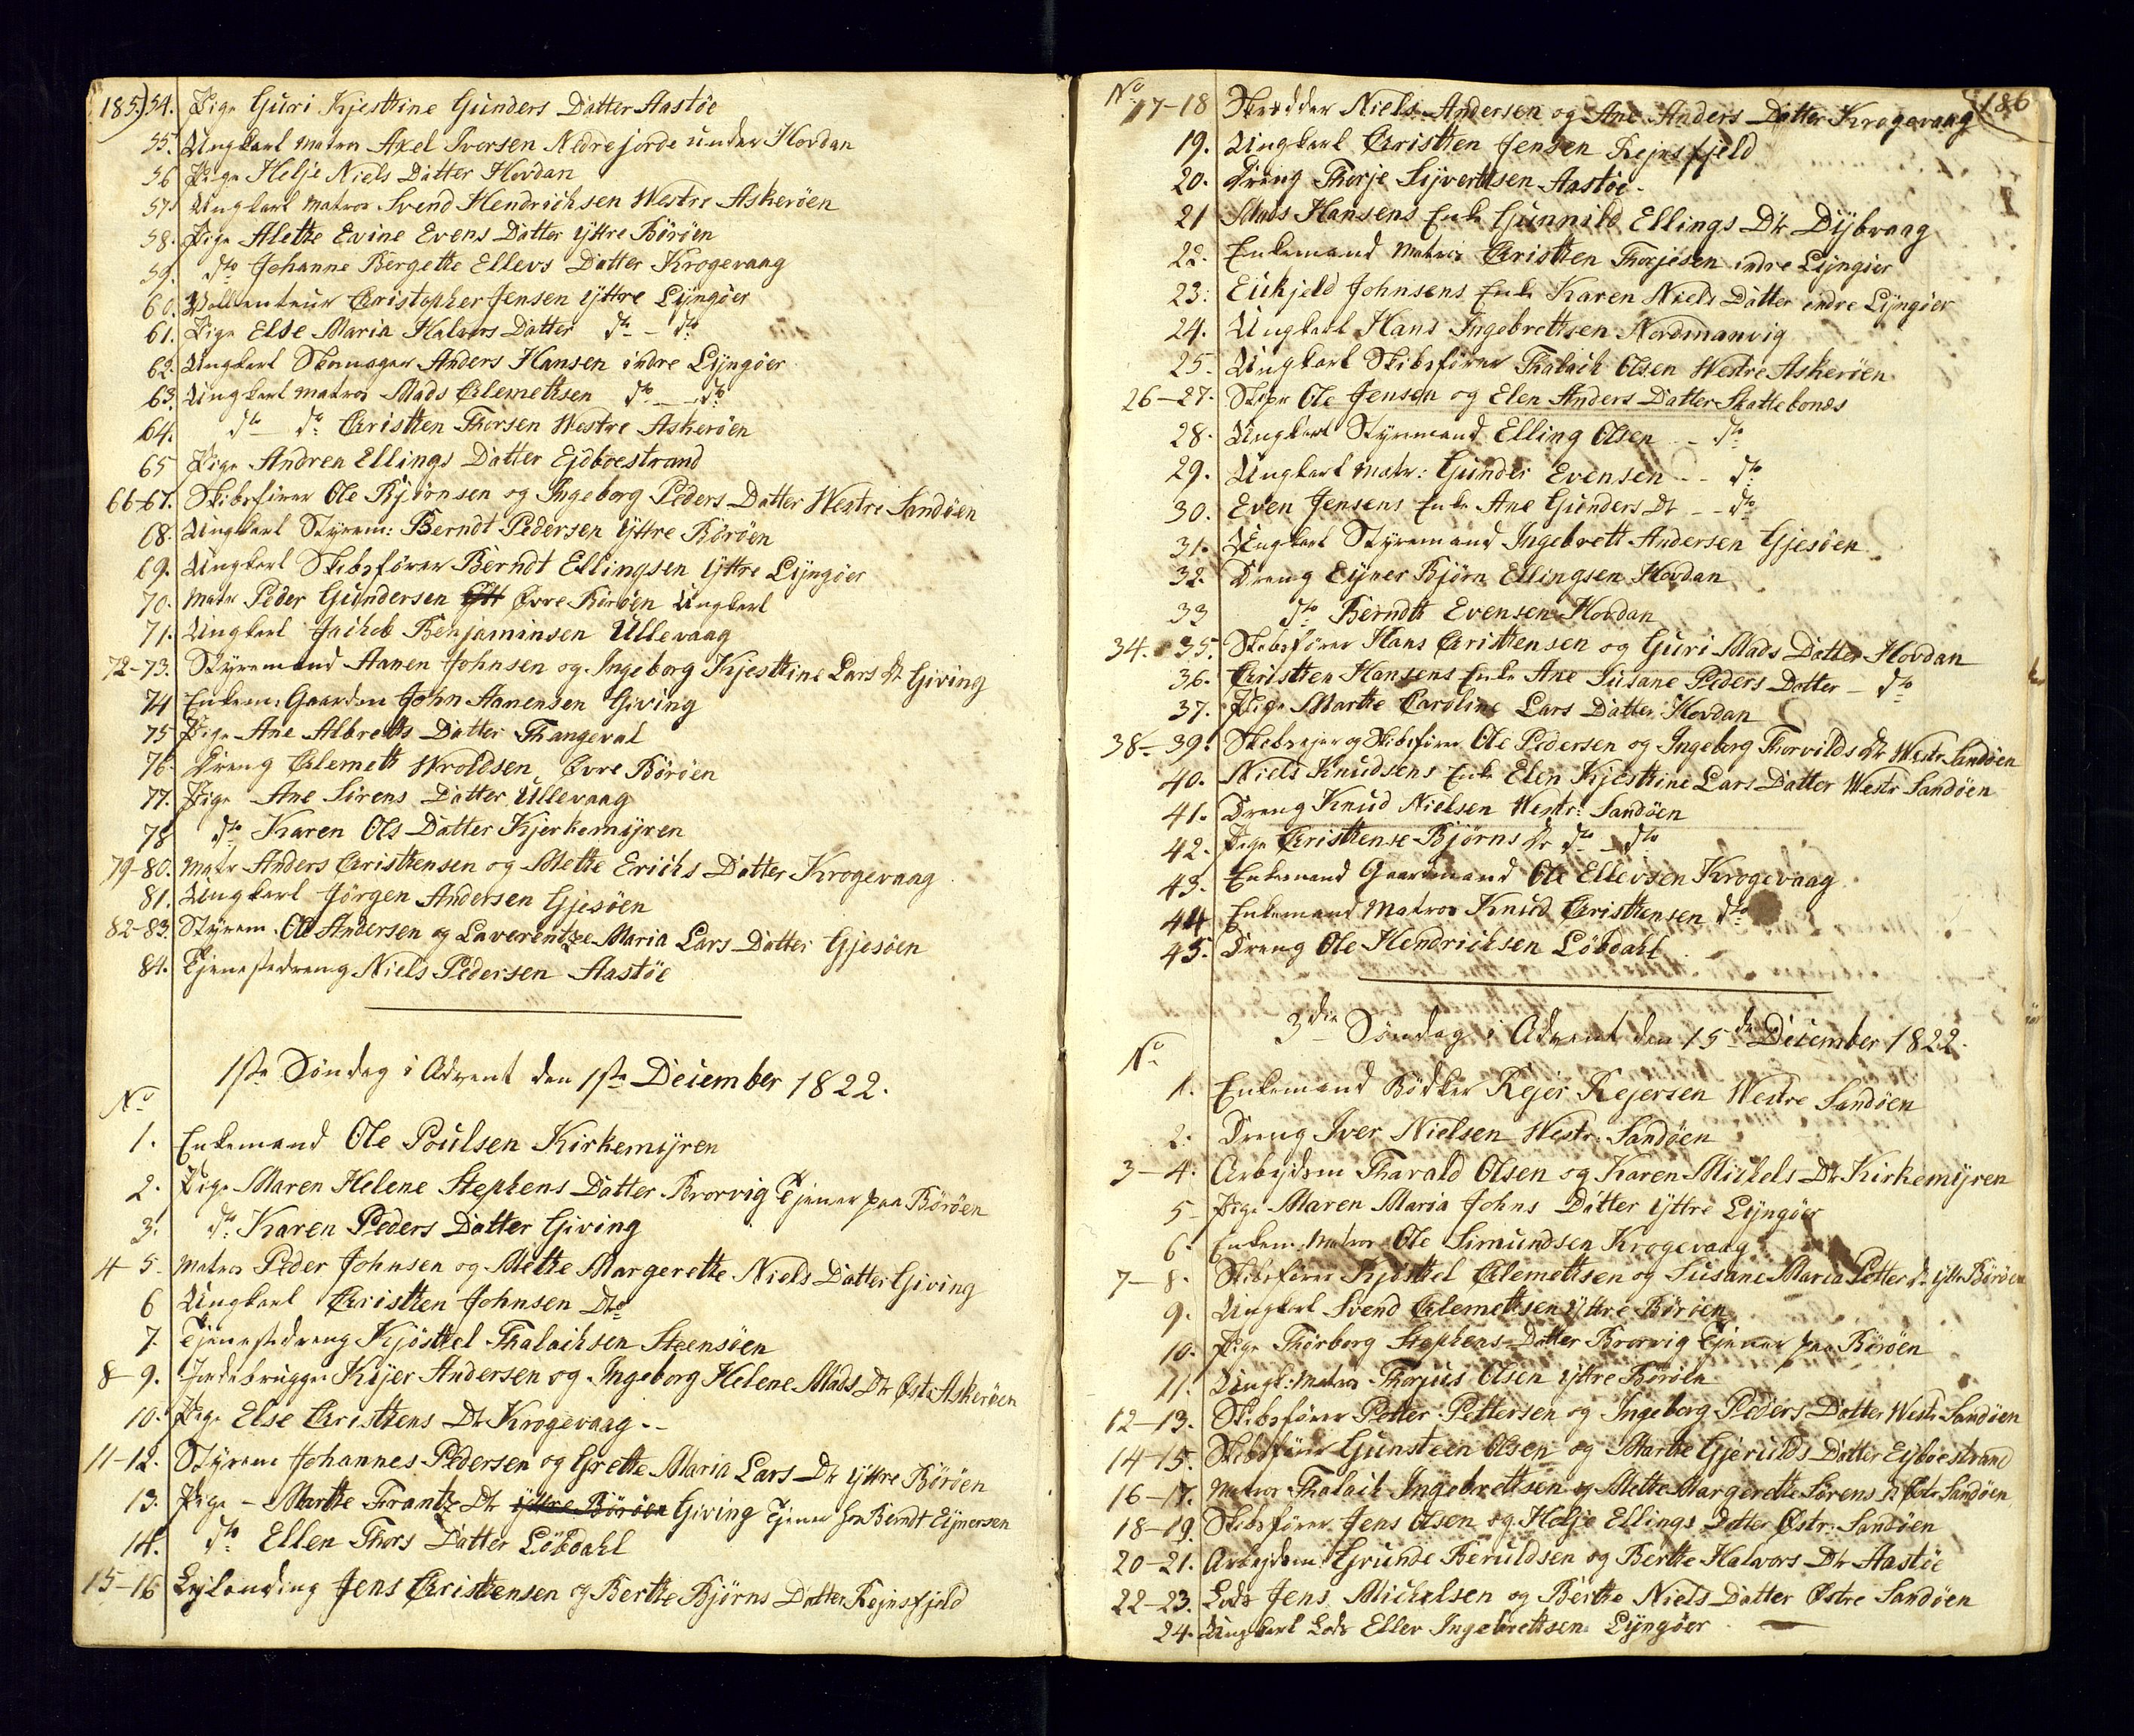 185.) 54. Pige Guri Kjestine Gunders Datter Aastøe
55. Ungkarl Matros Axel Iversen Nedrejorde under Hovdan
56 Pige Helje Niels Datter Hovdan
57. Ungkarl Matros Svend Hendrichsen Westre Askerøen
58. Pige Alethe Evine Evens Datter Yttre Børøen
59. Dto Johanne Bergethe Ellevs Datter Krogevaag
60. Vollenteur Christopher Jensen Yttre Lyngøer
61. Pige Else Maria Halvors Datter Dto - Dto
62. Ungkarl Skomager Anders Hansen indre Lyngøer
63. Ungkarl Matros Mads Clemethsen Dto - Dto
64. Dto - Do Christen Thorsen Westre Askerøen
65 Pige Andrea Ellings Datter Ejdboestrand
66-67. Skibsfører Ole Bjørnsen og Ingeborg Peders Datter Westre Sandøen
68. Ungkarl Styrem: Berndt Pedersen Yttre Børøen
69. Ungkarl Skibsfører Berndt Ellingsen Yttre Lyngøer
70. Matr Peder Gundersen Øvre Børøen Ungkarl
71. Ungkarl Jachob Benjaminsen Ullevaag
72-73. Styremand Aanen Johnsen og Ingeborg Kjestine Lars Dr Giving
74 Enkem: Gaardm John Aanensen Giving
75 Pige Ane Albreths Datter Thangeval
76. Dreng Clemeth Wroldsen Øvre Børøen
77. Pige Ane Sørens Datter Ullevaag
78 Dto Karen Ols Datter Kjerkemyren
79-80. Matr Anders Christensen og Methe Erichs Datter Krogevaag
81. Ungkarl Jørgen Andersen Gjesøen
82-83. Styrem. Ole Andersen og Laverentze Maria Lars Datter Gjesøen
84. Tjenestedreng Niels Pedersen Aastøe
1ste Søndag i Advent den 1ste December 1822.
No
1. Enkemand Ole Poulsen Kirkemyren
2. Pige Maren Helene Stephens Datter Brorvig Tjener paa Børøen
3. Do: Karen Peders Datter Giving
4-5. Matros Peder Johnsen og Methe Margerethe Niels Datter Giving
6 Ungkarl Christen Johnsen Dto
7. Tjenestedreng Kjøstel Thalachsen Steensøen
8-9. Jordebrugger Kijer Andersen og Ingeborg Helene Mads Dr Østr Askerøen
10. Pige Else Christens Dr Krogevaag
11-12. Styrem Johannes Pedersen og Grethe Maria Lars Dr Yttre Børøen
13. Pige - Marthe Frantz Dr Yttre Børøen Giving Tjener hos Berndt Eijnersen
14. Dto Ellen Thors Datter Løbdahl
15-16 Lejlending Jens Christensen og Berthe Bjørns Datter Rejnsfjeld
No 17-18 Skredder Niels Andersen og Ane Anders Datter Krogevaag (186
19. Ungkarl Christen Jensen Rejnsfjeld
20. Dreng Therje Sijvertsen Aastøe
21 Mads Hansens Enke Gunnild Ellings Dr Dijbvaag
22. Enkemand Matros Christen Thorjesen indre Lyngøer
23. Eichjeld Johnsens Enke Karen Niels Datter indre Lyngøer
24. Ungkarl Hans Ingebrethsen Nordmanvig
25. Ungkarl Skibsfører Thalach Olsen Westre Askerøen
26-27. Skipr Ole Jensen og Elen Anders Datter Skattebones
28. Ungkarl Styremand Elling Olsen - Dto
29. Ungkarl Matr: Gunder Evensen - Do
30. Even Jensens Enke Ane Gunders Dr - Dto
31. Ungkarl Styremand Ingebrett Andersen Gjesøen
32. Dreng Eijner Bjørn Ellingsen Hovdan
33 Dto Berndth Evensen Hovdan
34.-35. Skibsfører Hans Christensen og Guri Mads Datter Hovdan
36. Christen Hansens Enke Ane Susane Peders Datter - Dto
37. Pige Marthe Caroline Lars Datter Hovdan
38-39. Skibsrejer og Skibsfører Ole Pedersen og Ingeborg Thorvilds Dr Westr Sandøen
40. Niels Knudsens Enke Elen Kjestine Lars Datter Westr Sandøen
41. Dreng Knud Nielsen Westr: Sandøen
42. Pige Christense Bjørns Dr Dto - Dto
43. Enkemand Gaardmand Ole Ellevsen Krogevaag
44 Enkemand Matros Knud Christensen Dto
45. Dreng Ole Hendrichsen Løbdahl
3die Søndag i Advent den 15de December 1822.
No
1. Enkemand Bødker Rejer Rejersen Westre Sandøen
2. Dreng Iver Nielsen Westr: Sandøen
3-4. Arbejdsm Tharald Olsen og Karen Michels Dr Kirkemyren
5 Pige Maren Maria Johns Datter Yttre Lyngøer
6. Enkem. Matros Ole Simundsen Krogevaag
7-8. Skibsfører Kjøstel Clemethsen og Susane Maria Petter Dr Yttr Børøen
9. Ungkarl Svend Clemethsen Yttre Børøen
10. Pige Thorborg Stephens Datter Brorvig Tjener paa Børøen
11. Ungk: Matros Thorjus Olsen Yttre Børøen
12-13. Skibsfører Petter Pettersen og Ingeborg Peders Datter Westr Sandøen
14-15. Skibsfører Gunsteen Olsen og Marthe Gjerulds Datter Eijboestrand
16-17. Matros Thalach Ingebrethsen og Methe Margerethe Sørens Dr Østr Sandøen
18-19 Skibsfører Jens Olsen og Helje Ellings Datter Østr: Sandøen
20-21. Arbejdsm Grunde Beruldsen og Berthe Halvors Dr Aastøe
22-23. Lods Jens Michelsen og Berthe Niels Datter Østre Sandøen
24. Ungkarl Lods Ellev Ingebrethsen Lyngøer